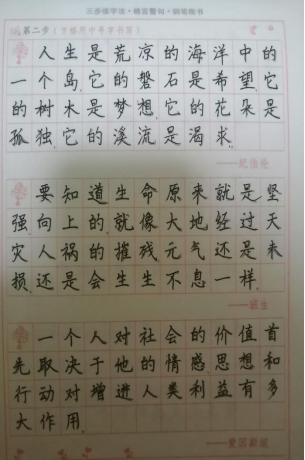 三步练字法·精言警句·钢笔楷书
第二步（方格历中号字书写）
人生是荒凉的海洋中的
一个岛,它的磐石是希望,它
的树木是梦想,它的花朵是
孤独,它的溪流是渴求.
——纪伯伦
要知道生命原来就是坚
强,向上的,就像大地经过天
灾人祸的摧残元气还是未
损,还是会生生不息一样.
一个人对社会的价值首
先取决于他的情感思想和
行动对增进人类利益有多
大作用.
——爱因斯坦